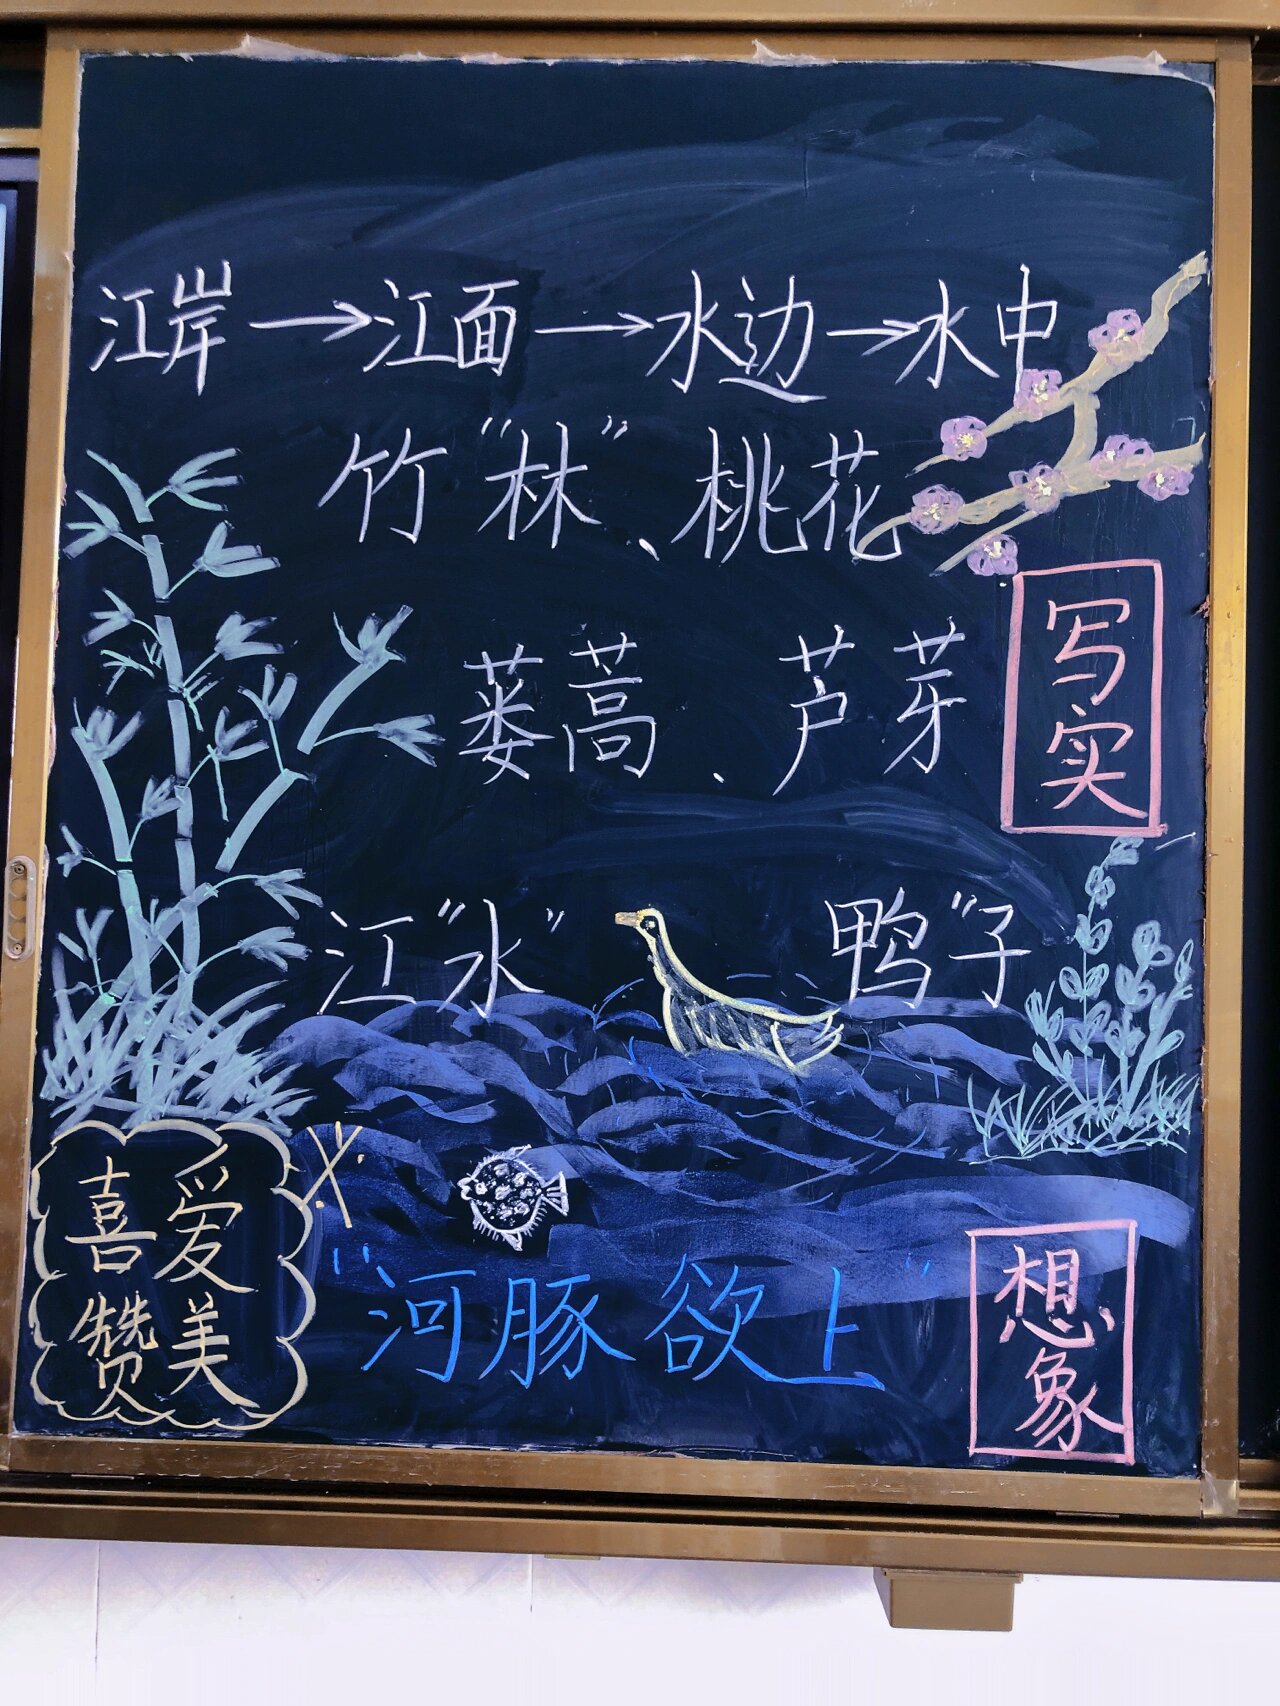 江岸→江面→水边→水中
竹“林”、桃花
蒌蒿、芦芽
写实
江“水” 鸭“子
喜爱
赞美
“河豚欲上”
想象